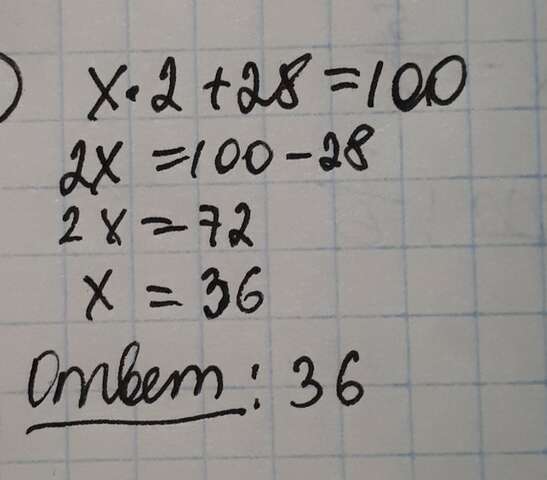 ) x·2+28=100
2x=100-28
2x=72
x=36
Ответ: 36